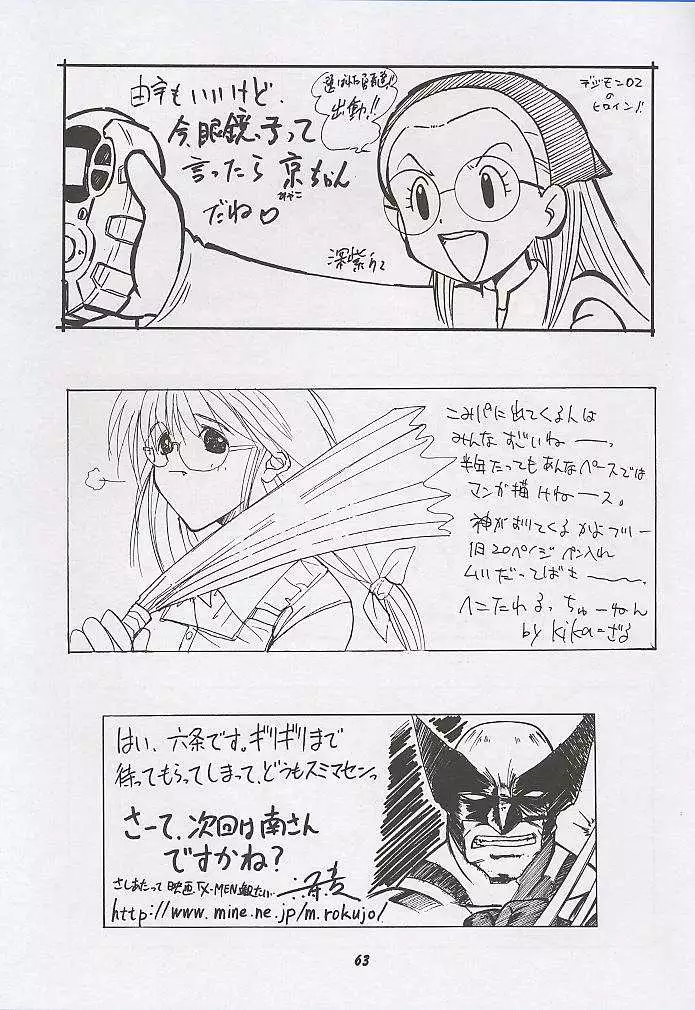 由宇もいいけど、
今、眼鏡っ子って
言ったら 京ちゃん
みやこ
だね♡
選ばれし子供達!!
出動!!
デジモン02
の
ヒロイン!!
深紫
こみパに出てくる人は
みんな すごいねー。
半年たってもあんなペースでは
マンガ描けねーっス。
神がおりてくるかよっ!!
1日20ページ ペン入れ
ムリだってばさ
へこたれるっちゅーねん
by kika=ざる
はい、六条です。ギリギリまで
待ってもらってしまって、どうもスミマセンっ
さーて、次回は南さん
ですかね?
さしあたって 映画「X-MEN観たい…
http://www.mine.ne.jp/m.rokujo/
63